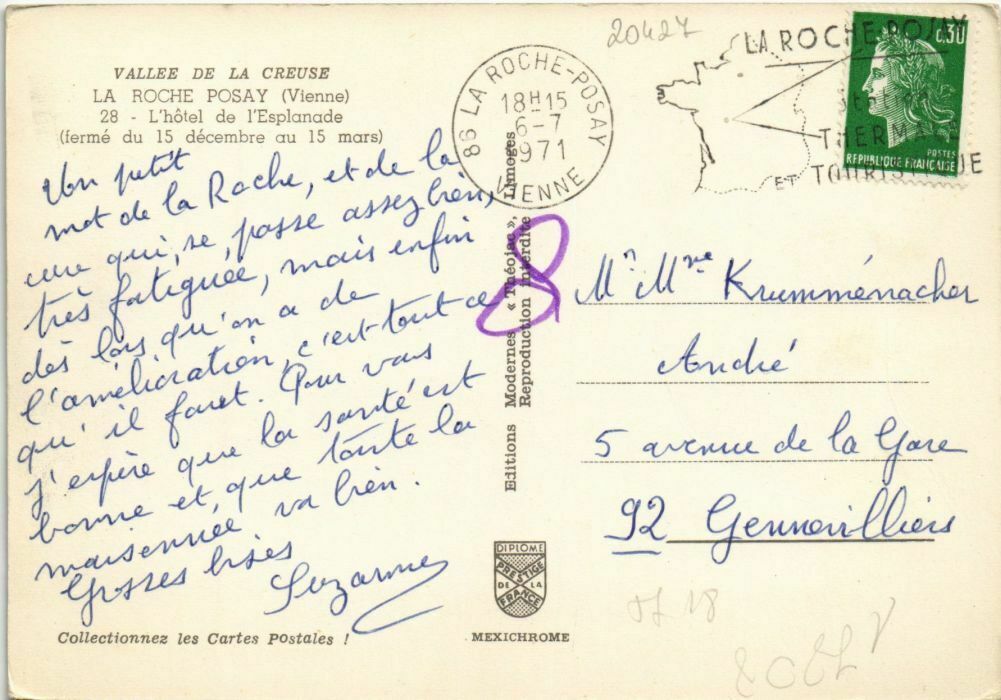 VALLEE DE LA CREUSE
LA ROCHE POSAY (Vienne)
28 - L'hôtel de l'Esplanade
(fermé du 15 décembre au 15 mars)
Un petit
mot de la Roche, et de la
cure qui, se, passe assez bien,
très fatiguée, mais enfin
dès lors qu'on a de
l'amélioration, c'est tout ce
qu'il faut. Pour vous
j'espère que la santé est
bonne et, que toute la
maisonnée va bien.
Grosses bises
Suzanne
Collectionnez les Cartes Postales !
20427
86 LA ROCHE-POSAY
18H15
6-7
1971
VIENNE
LA ROCHE POSAY
THERMALE
ET TOURISTIQUE
0,30
POSTES
REPUBLIQUE FRANÇAISE
Editions Modernes « Théojac », Limoges
Reproduction interdite
8
Mr Mme Krumménacher
André
5 avenue de la Gare
92 Gennevilliers
DIPLOME
PRESTIGE
DE LA
FRANCE
MEXICHROME